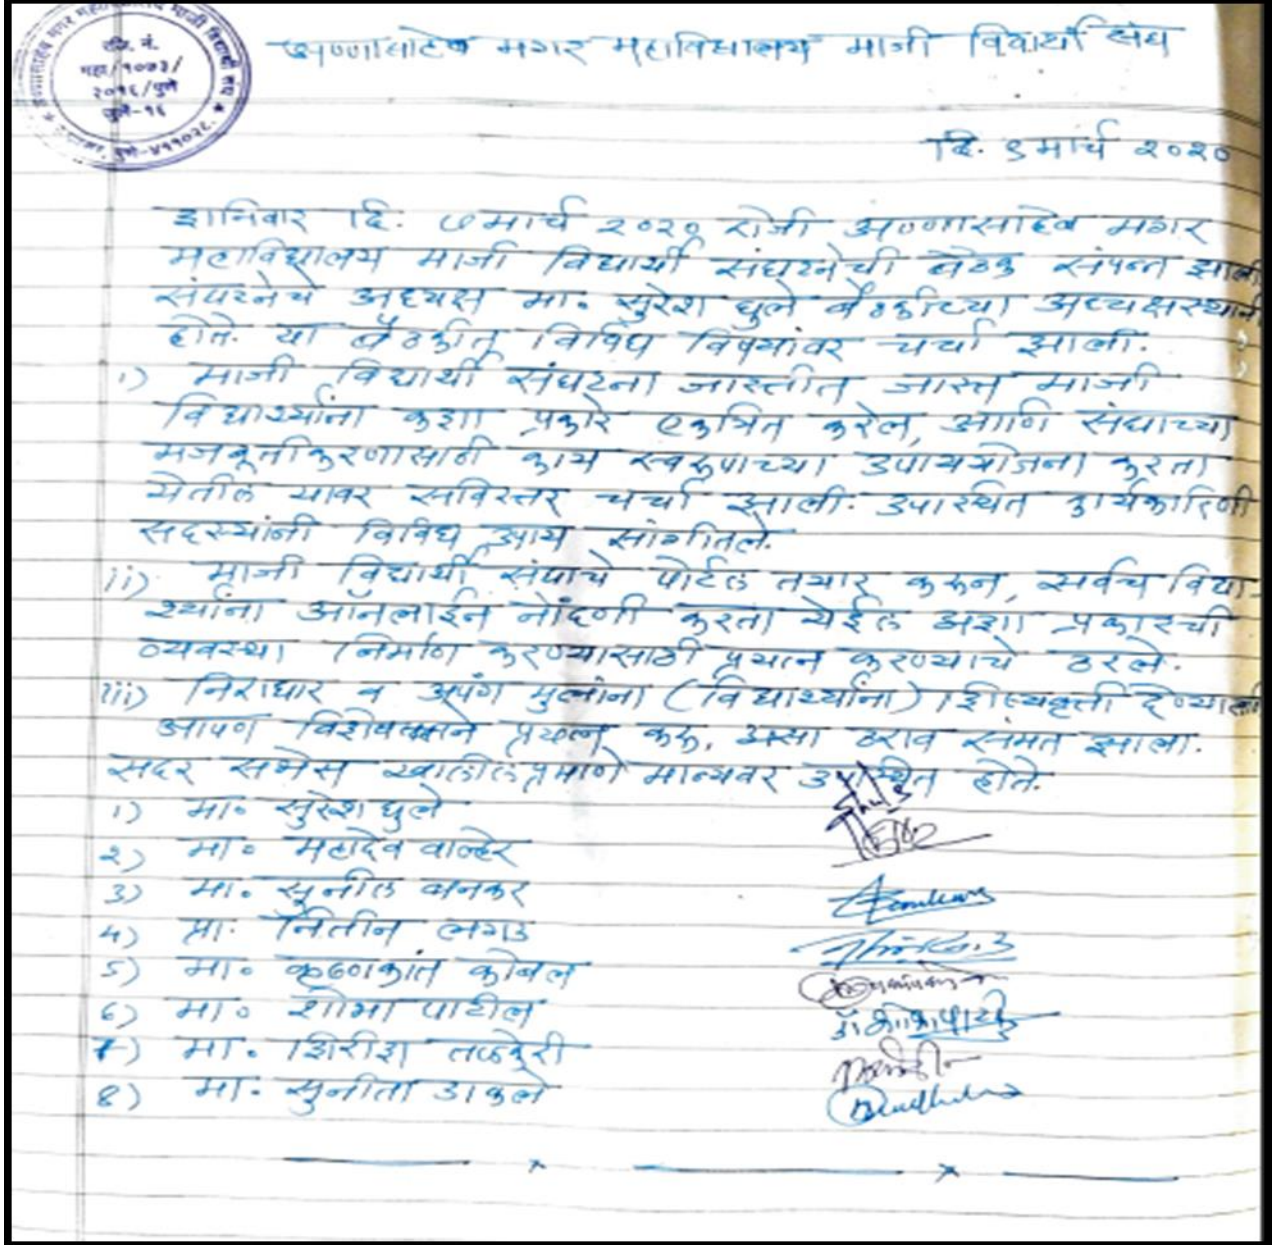 अण्णासाहेब मगर महाविद्यालय माजी विद्यार्थी संघ
रजि. नं.
महा/१०७३/
२०१६/पुणे
जुलै-१६
दि. ९ मार्च २०२०
शनिवार दि. ७ मार्च २०२० रोजी अण्णासाहेब मगर
महाविद्यालय माजी विद्यार्थी संघटनेची बैठक संपन्न झाली
संघटनेचे अध्यक्ष मा. सुरेश घुले बैठकीच्या अध्यक्षस्थानी
होते. या बैठकीत विविध विषयांवर चर्चा झाली.
i) माजी विद्यार्थी संघटना जास्तीत जास्त माजी
विद्यार्थ्यांना कशा प्रकारे एकत्रित करेल, आणि संघाच्या
मजबूतीकरणासाठी काय स्वरूपाच्या उपाययोजना करता
येतील यावर सविस्तर चर्चा झाली. उपस्थित कार्यकारिणी
सदस्यांनी विविध उपाय सांगीतले.
ii) माजी विद्यार्थी संघाचे पोर्टल तयार करून, सर्वच विद्या-
र्थ्यांना ऑनलाईन नोंदणी करता येईल अशा प्रकारची
व्यवस्था निर्माण करण्यासाठी प्रयत्न करण्याचे ठरले.
iii) निराधार व अपंग मुलांना (विद्यार्थ्यांना) शिष्यवृत्ती देण्यासाठी
आपण विशेषत्वाने प्रयत्न करू, असा ठराव संमत झाला.
सदर सभेस खालीलप्रमाणे मान्यवर उपस्थित होते.
1) मा. सुरेश घुले
2) मा. महादेव वाल्हेर
3) मा. सुनील बनकर
4) प्रा. नितीन लगड
5) मा. कृष्णकांत कोबल
6) मा. शोभा पाटील
7) मा. शिरीश तळेकुरी
8) मा. सुनीता डाकले